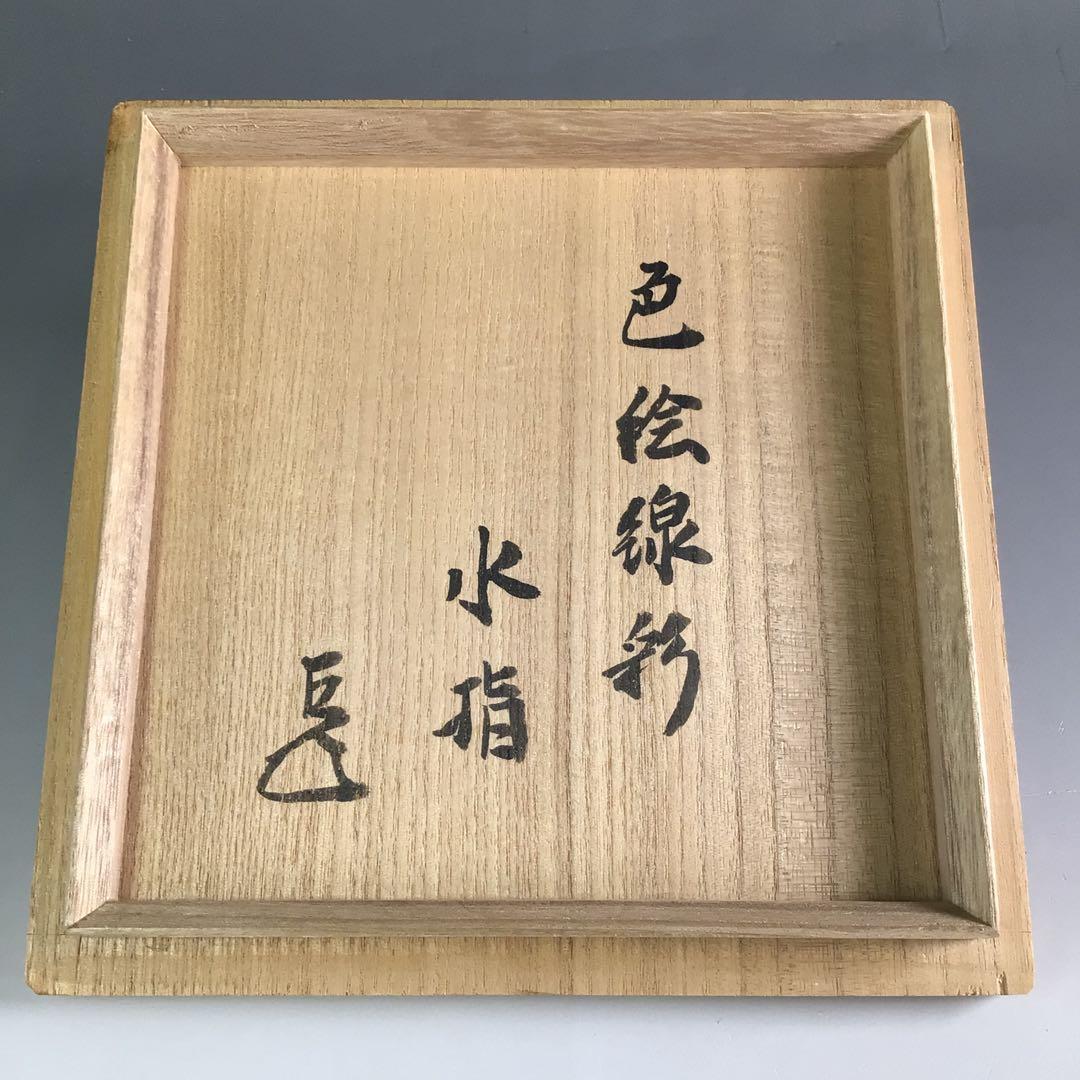 色絵線彩
水指